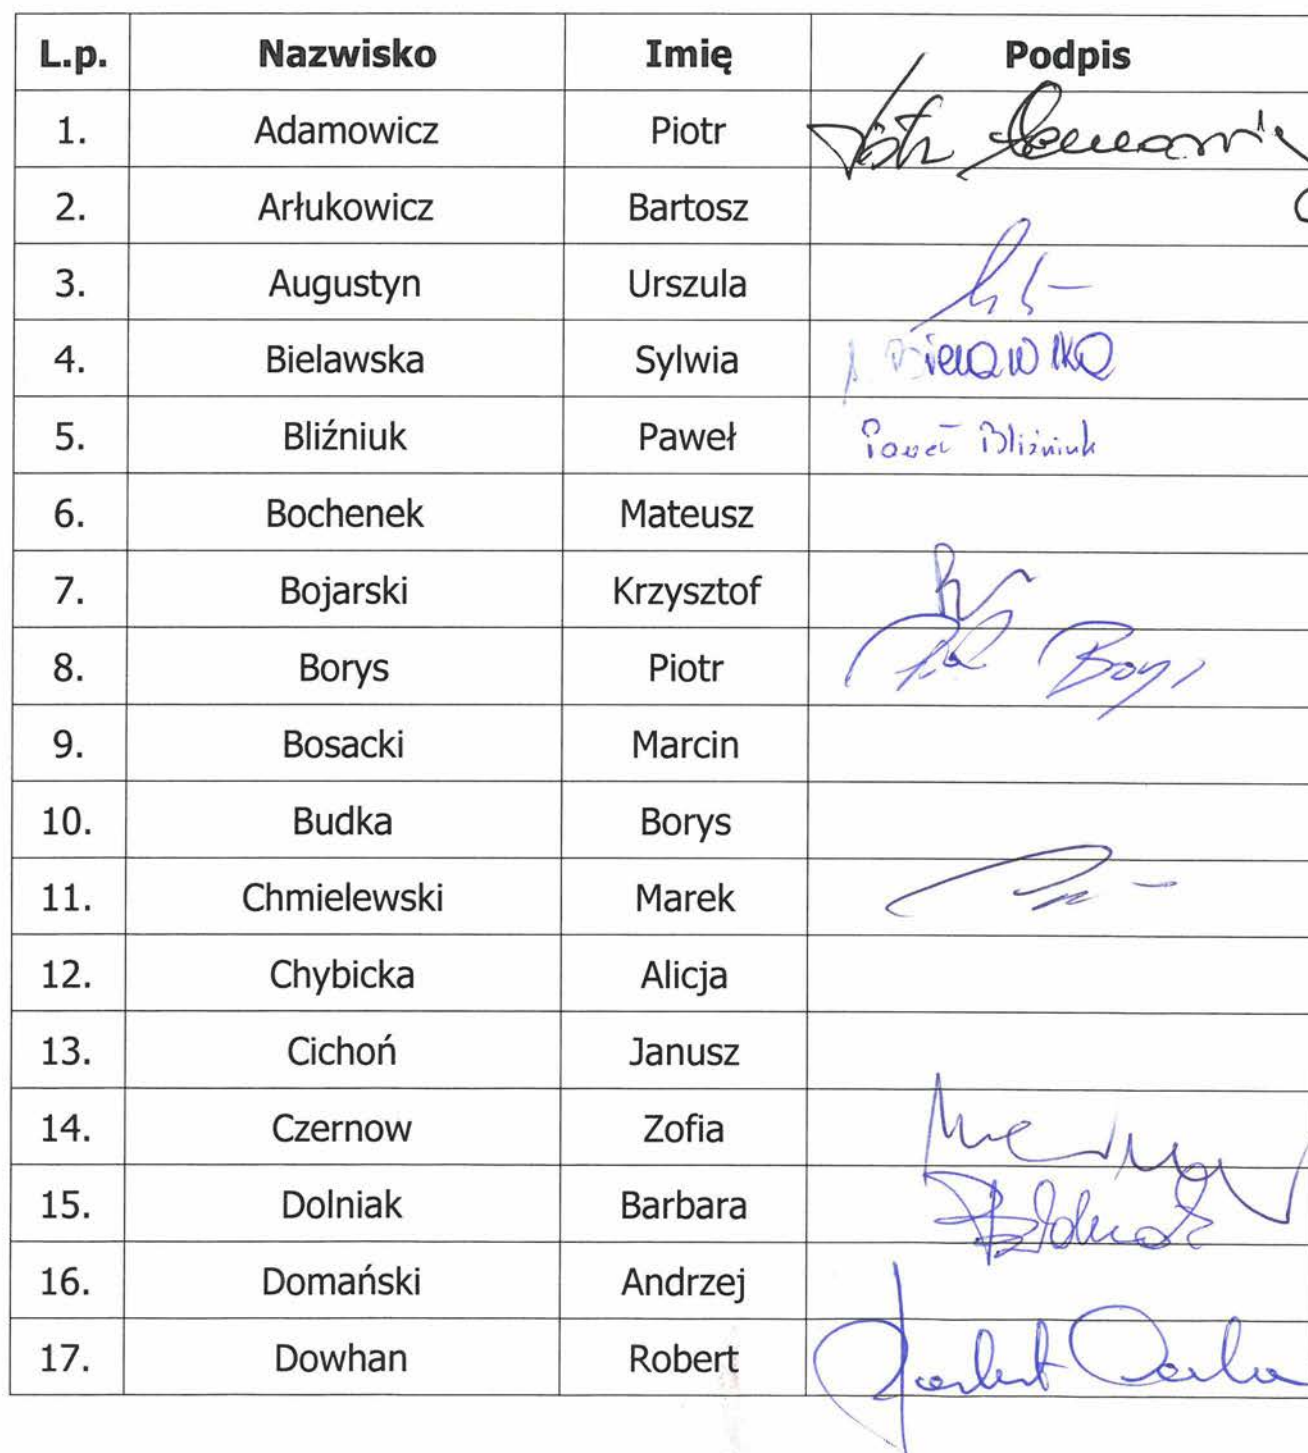 L.p. Nazwisko Imię Podpis
1. Adamowicz Piotr
2. Arłukowicz Bartosz
3. Augustyn Urszula
4. Bielawska Sylwia
5. Bliźniuk Paweł Paweł Bliźniuk
6. Bochenek Mateusz
7. Bojarski Krzysztof
8. Borys Piotr Borys
9. Bosacki Marcin
10. Budka Borys
11. Chmielewski Marek
12. Chybicka Alicja
13. Cichoń Janusz
14. Czernow Zofia
15. Dolniak Barbara
16. Domański Andrzej
17. Dowhan Robert